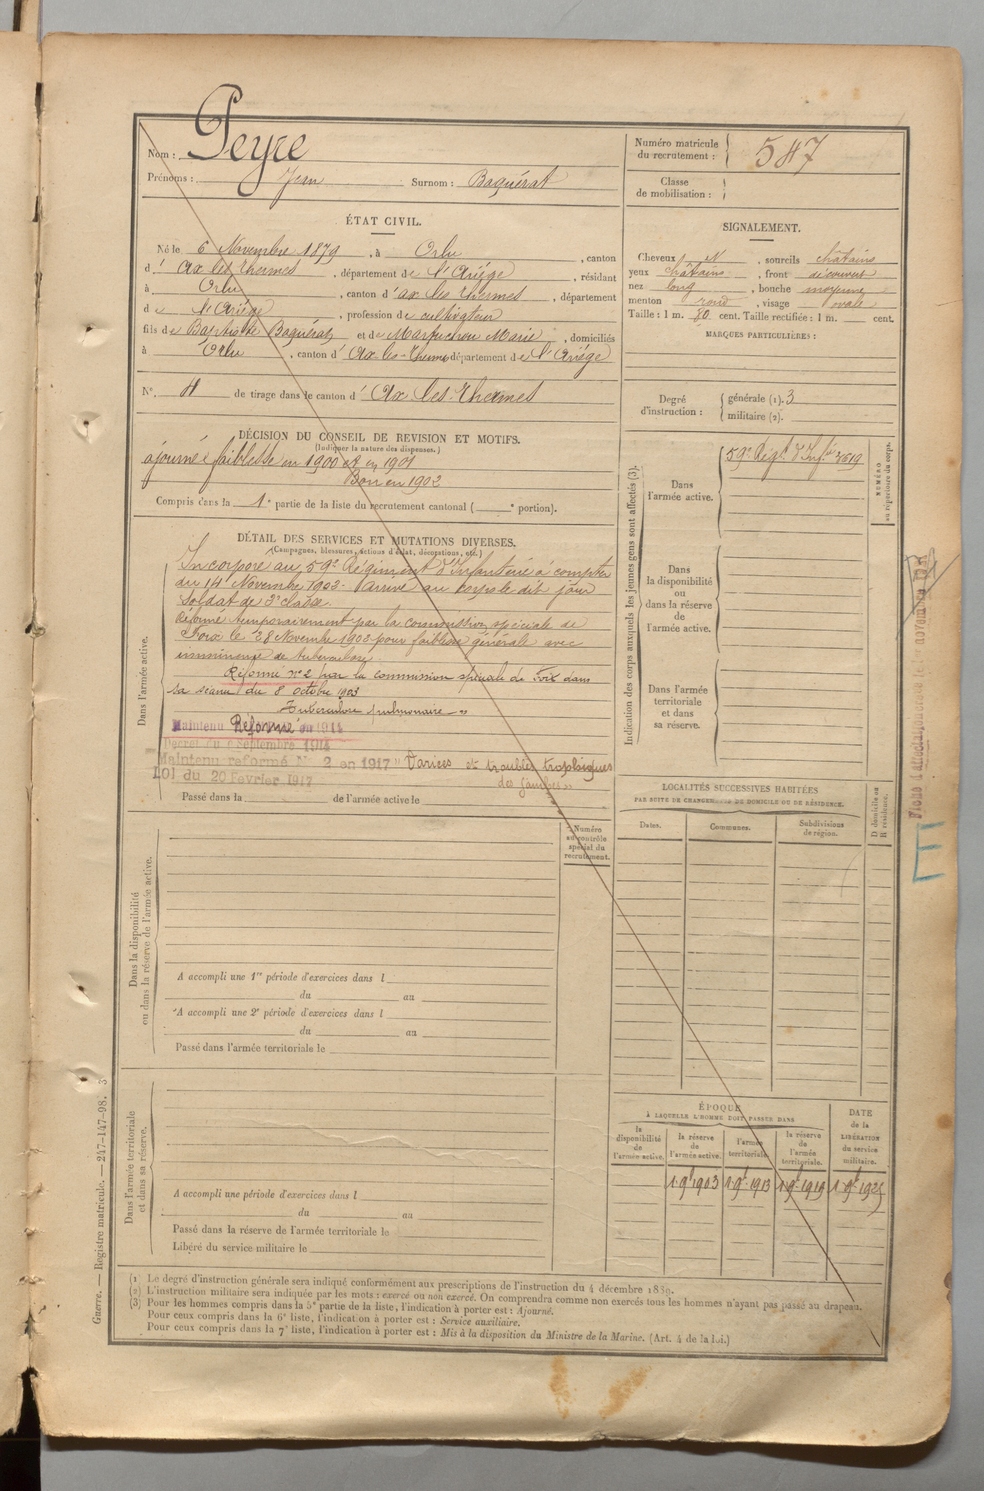 Nom : Peyre
Prénoms : Jean Surnom : Baquérat
Numéro matricule du recrutement : 587
Classe de mobilisation :
ÉTAT CIVIL.
Né le 6 Novembre 1879, à Orlu, canton
d' Ax les Thermes, département de l'Ariège, résidant
à Orlu, canton d' ax les Thermes, département
de l'Ariège, profession de cultivateur
fils de Baptiste Baquérat et de Marie, domiciliés
à Orlu, canton d' Ax-les-Thermes département de l'Ariège
N° de tirage dans le canton d' Ax les Thermes
SIGNALEMENT.
Cheveux , sourcils châtains
yeux châtains, front découvert
nez long, bouche moyenne
menton rond, visage ovale
Taille : 1 m. 50 cent. Taille rectifiée : 1 m. cent.
MARQUES PARTICULIÈRES :
Degré d'instruction : générale (1). 3
militaire (2).
DÉCISION DU CONSEIL DE REVISION ET MOTIFS.
(Indiquer la nature des dispenses.)
ajourné faiblesse en 1900 et en 1901
Bon en 1902
Compris dans la 1e partie de la liste du recrutement cantonal ( e portion).
DÉTAIL DES SERVICES ET MUTATIONS DIVERSES.
(Campagnes, blessures, actions d'éclat, décorations, etc.)
Dans l'armée active.
Incorporé au 59e Régiment d'Infanterie à compter
du 14 Novembre 1902. Arrivé au corps le dit jour
Soldat de 2e classe.
Réformé temporairement par la commission spéciale de
Foix le 28 Novembre 1902 pour faiblesse générale avec
imminence de tuberculose.
Réformé n° 2 par la commission spéciale de Foix dans
sa séance du 8 octobre 1903
Tuberculose pulmonaire »
Maintenu Réformé en 1914
Décret du 9 Septembre 1914
Maintenu reformé N° 2 en 1917 " Varices et troubles trophiques
Loi du 20 Fevrier 1917 des jambes »
Passé dans la de l'armée active le
Indication des corps auxquels les jeunes gens sont affectés (3).
Dans l'armée active. 59e Régt d'Infie 3619
NUMÉRO au répertoire du corps.
Dans la disponibilité ou dans la réserve de l'armée active.
Dans l'armée territoriale et dans sa réserve.
LOCALITÉS SUCCESSIVES HABITÉES
PAR SUITE DE CHANGEMENTS DE DOMICILE OU DE RÉSIDENCE.
Dates. Communes. Subdivisions de région. D domicile ou R résidence.
Numéro au contrôle spécial du recrutement.
Dans la disponibilité ou dans la réserve de l'armée active.
A accompli une 1re période d'exercices dans l
du au
A accompli une 2e période d'exercices dans l
du au
Passé dans l'armée territoriale le
Dans l'armée territoriale et dans sa réserve.
A accompli une période d'exercices dans l
du au
Passé dans la réserve de l'armée territoriale le
Libéré du service militaire le
ÉPOQUE
À LAQUELLE L'HOMME DOIT PASSER DANS
la disponibilité de l'armée active. la réserve de l'armée active. l'armée territoriale. la réserve de l'armée territoriale. DATE de la LIBÉRATION du service militaire.
1 9bre 1903 1 9bre 1913 1 9bre 1919 1 9bre 1925
(1) Le degré d'instruction générale sera indiqué conformément aux prescriptions de l'instruction du 4 décembre 1889.
(2) L'instruction militaire sera indiquée par les mots : exercé ou non exercé. On comprendra comme non exercés tous les hommes n'ayant pas passé au drapeau.
(3) Pour les hommes compris dans la 5e partie de la liste, l'indication à porter est : Ajourné.
Pour ceux compris dans la 6e liste, l'indication à porter est : Service auxiliaire.
Pour ceux compris dans la 7e liste, l'indication à porter est : Mis à la disposition du Ministre de la Marine. (Art. 4 de la loi.)
Guerre. — Registre matricule. — 247-147-98. 3
E